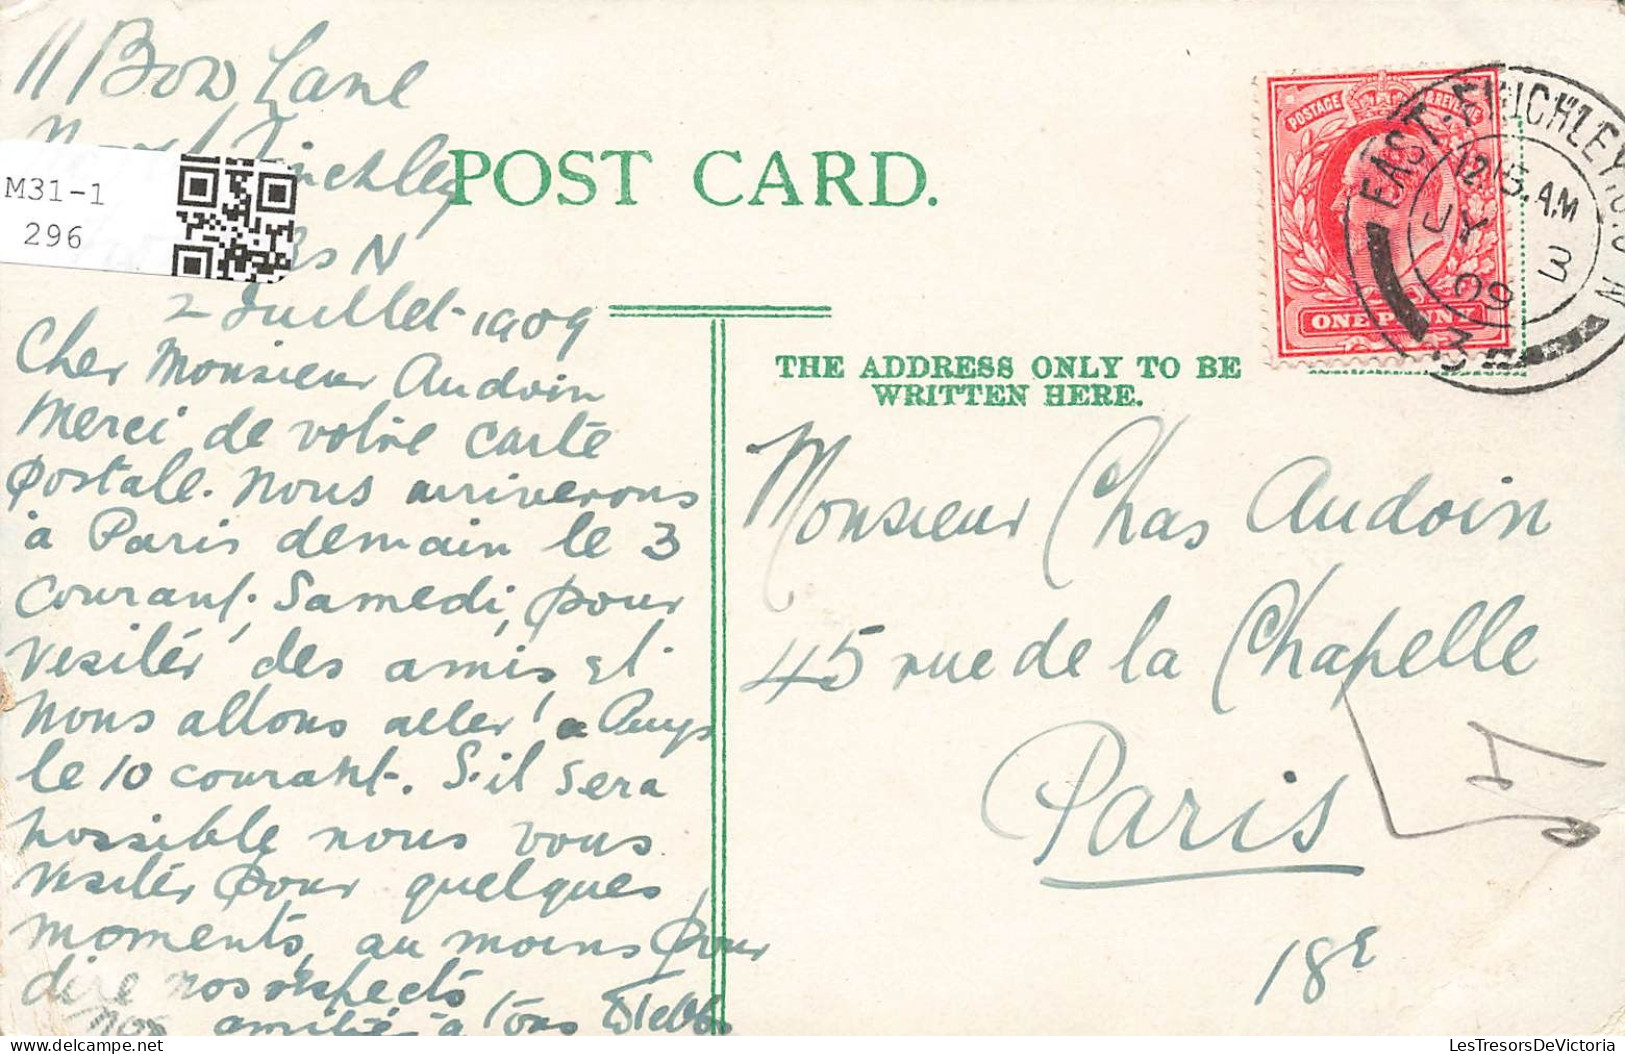 11 Bow Lane
Finchley
N
2 Juillet 1909
Cher Monsieur Audoin
Merci de votre carte
postale. Nous arriverons
à Paris demain le 3
courant. Samedi, pour
visiter des amis et
nous allons aller à
le 10 courant. S'il sera
possible nous vous
visiter pour quelques
moments, au moins pour
dire nos respects
amitié à tous
M31-1
296
POST CARD.
THE ADDRESS ONLY TO BE
WRITTEN HERE.
POSTAGE & REVENUE
ONE PENNY
EAST FINCHLEY.S.O N
12.15.AM
JY 3
09
Monsieur Chas Audoin
45 rue de la Chapelle
Paris
18e
LesTresorsDeVictoria